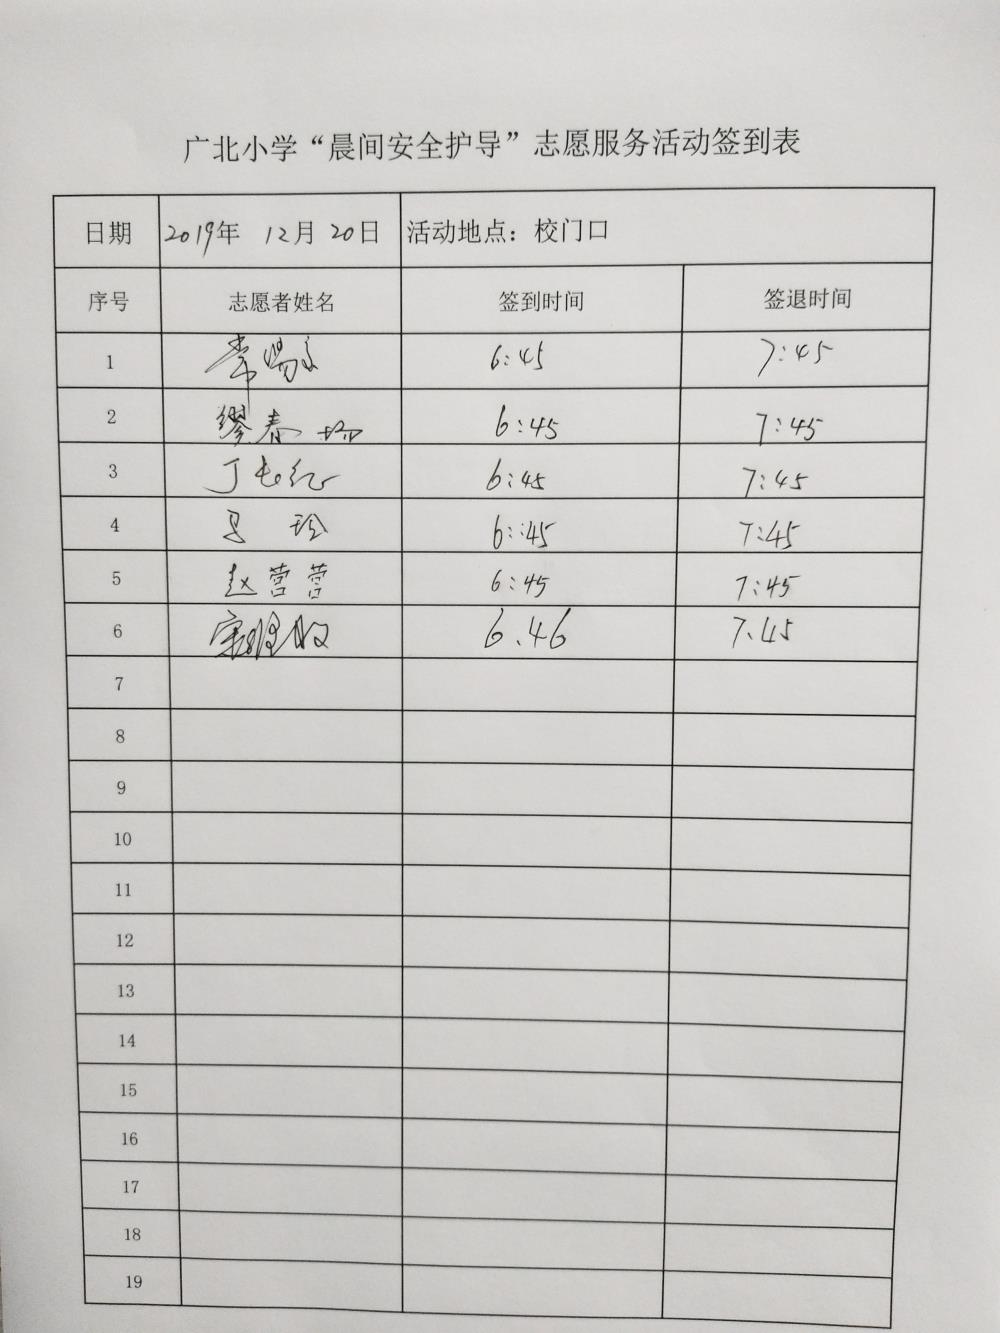 广北小学“晨间安全护导”志愿服务活动签到表
日期 2019年 12月 20日 活动地点：校门口
序号 志愿者姓名 签到时间 签退时间
1 常 6:45 7:45
2 缪春 6:45 7:45
3 丁长红 6:45 7:45
4 玲 6:45 7:45
5 赵营营 6:45 7:45
6 6.46 7.45
7
8
9
10
11
12
13
14
15
16
17
18
19